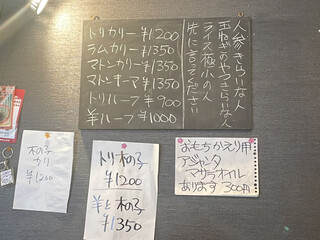 人参きらいな人
玉ねぎのやつきらいな人
ライス極小の人
先に言ってください
トリカリー ¥1200
ラムカリー ¥1350
マトンカリー ¥1350
マトンキーマ ¥1350
トリハーフ ¥900
羊ハーフ ¥1000
木の子
カリ
¥1200
トリ木の子
¥1200
羊と木の子
¥1350
おもちかえり用
アジャンタ
マサラオイル
あります 300円